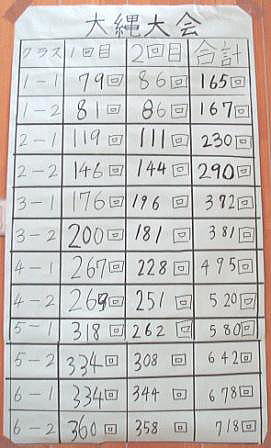 大縄大会
クラス 1回目 2回目 合計
1-1 79回 86回 165回
1-2 81回 86回 167回
2-1 119回 111回 230回
2-2 146回 144回 290回
3-1 176回 196回 372回
3-2 200回 181回 381回
4-1 267回 228回 495回
4-2 269回 251回 520回
5-1 318回 262回 580回
5-2 334回 308回 642回
6-1 334回 344回 678回
6-2 360回 358回 718回